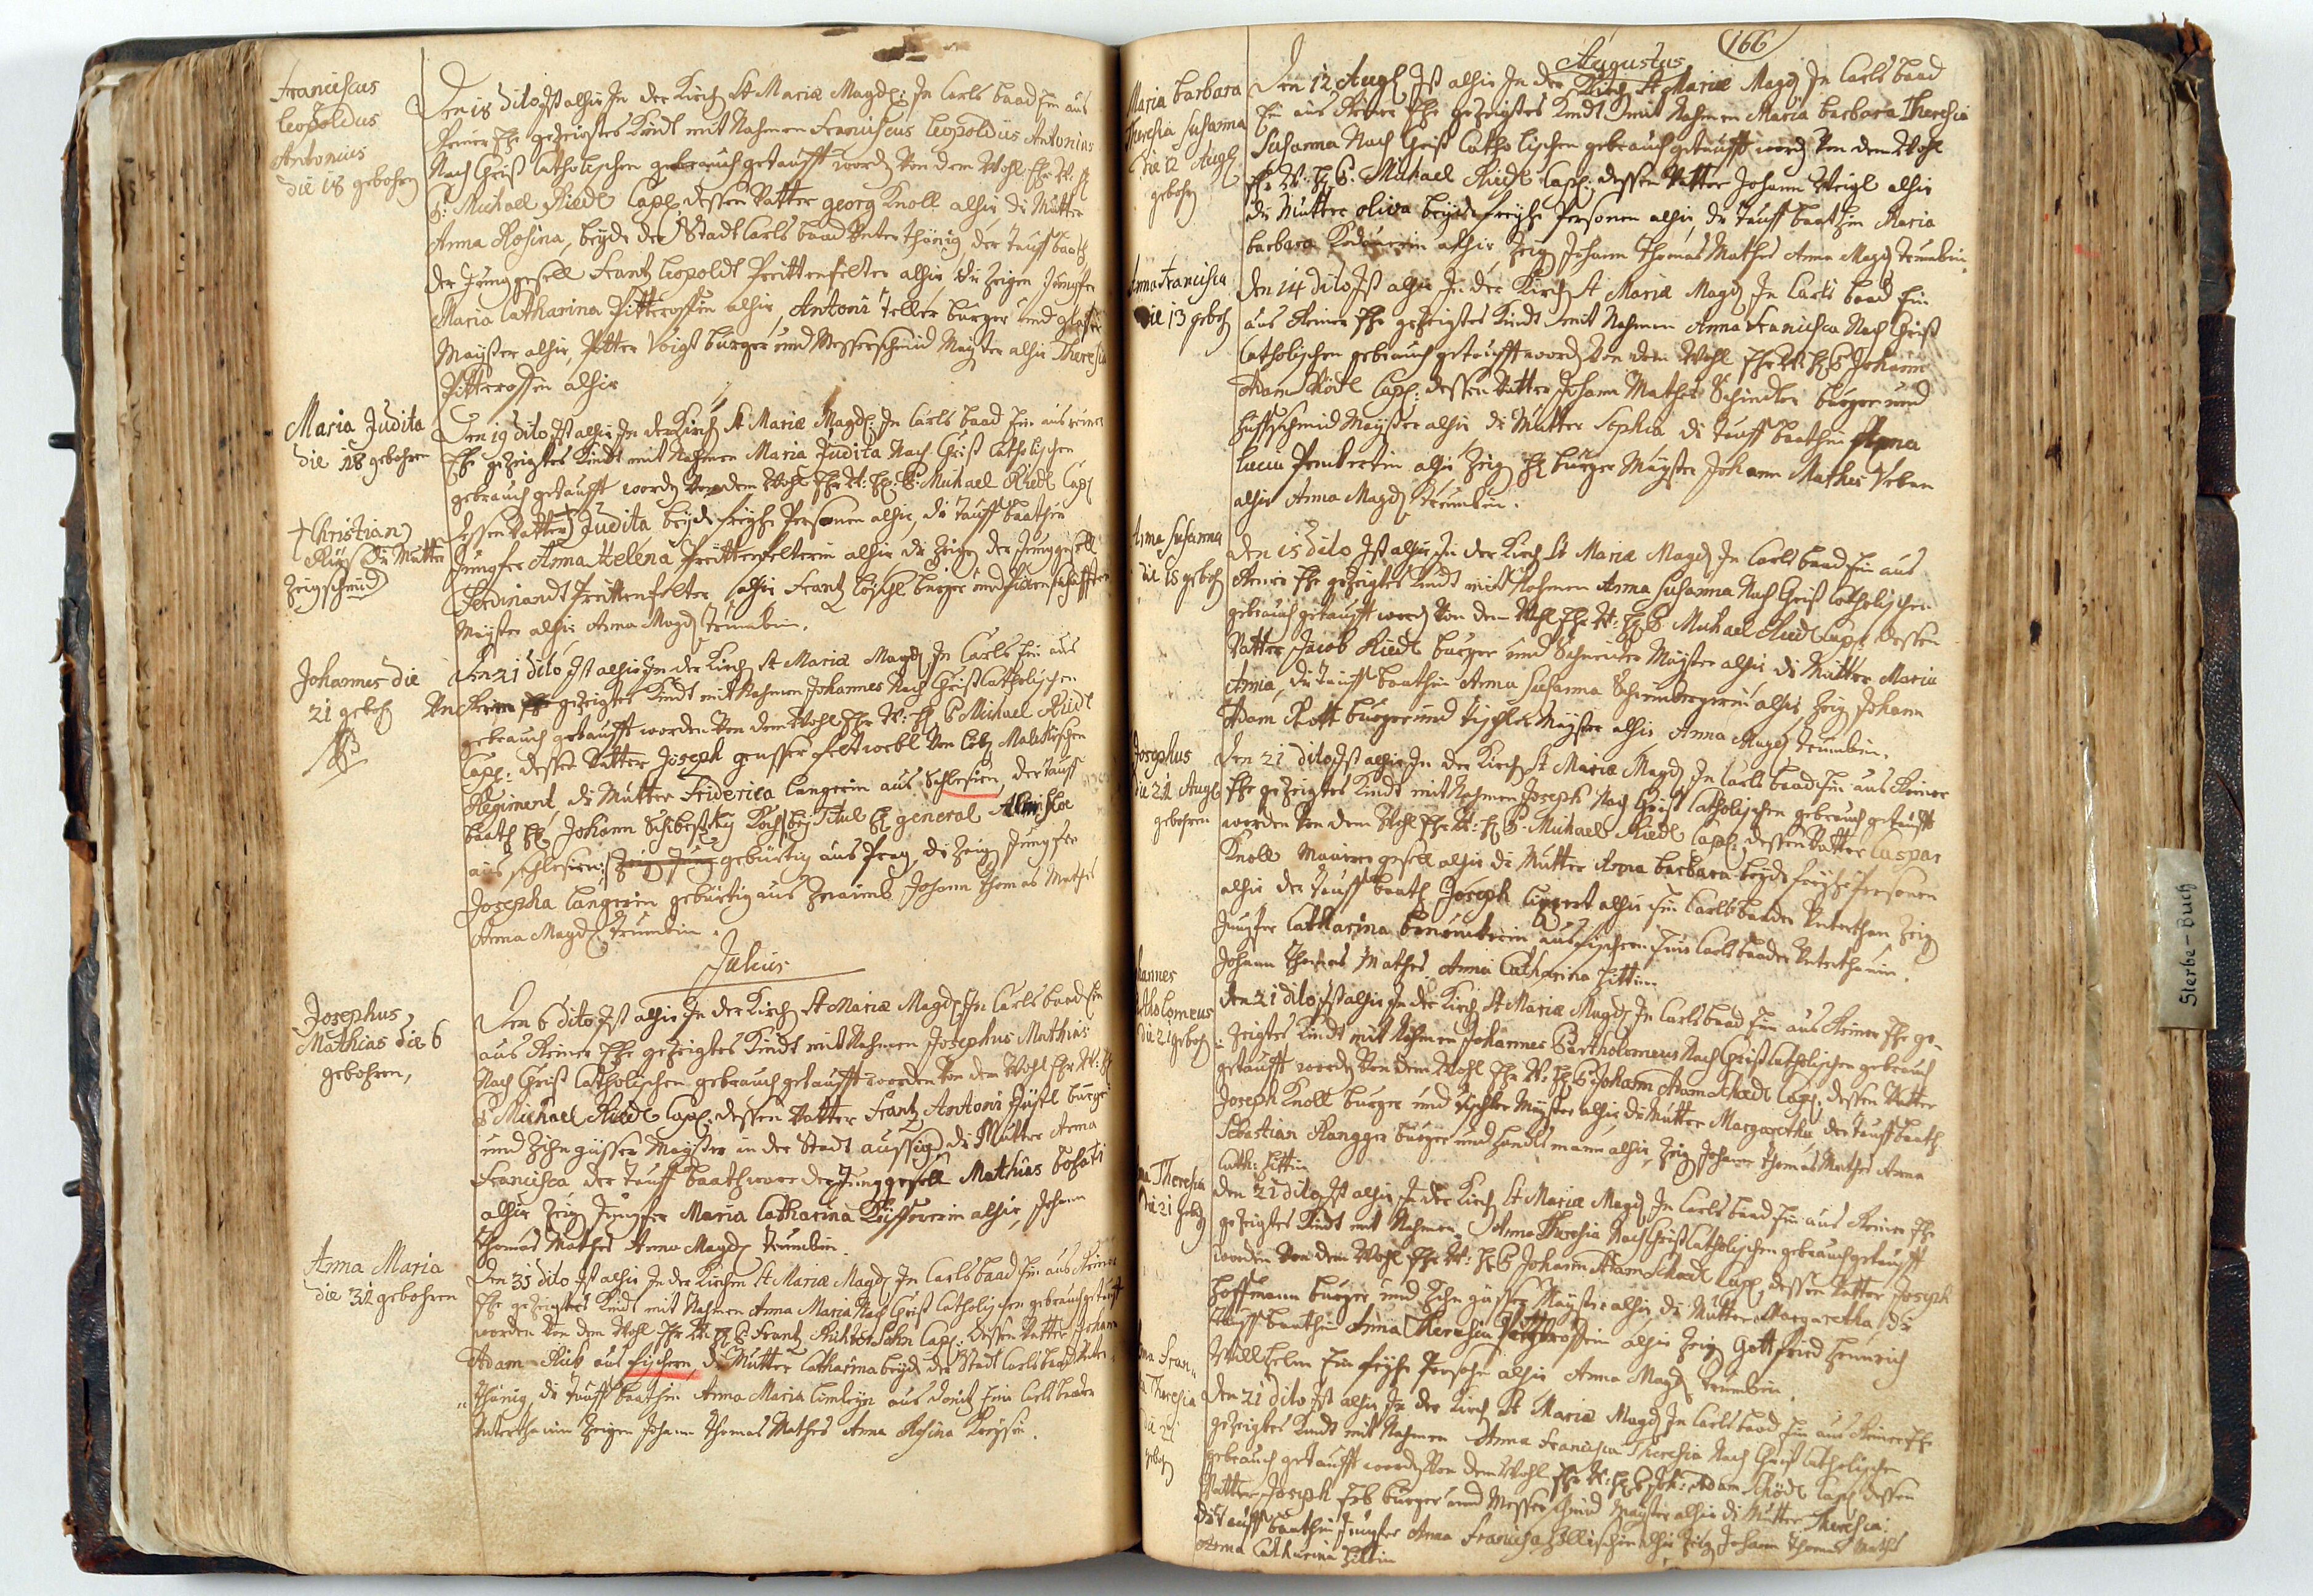 Franciscus
Leopoldus
Antonius
die 18 gebohren
Den 18 dito Ist alhir In der Kirch St Mariæ Magd: In Carls baad Ein aus
Reiner Ehe gezeigtes Kindt mit Nahmen Franciscus Leopoldus Antonius
Nach Christ Catholischen gebrauch getaufft word Von dem Wohl Ehr W: H
P: Michael Riedl Capl dessen Vatter georg Knoll alhir di Mutter
Anna Rosina, beyde der Stadt Carls baad Unterthänig, der Tauff baath
der Jung gesell Frantz Leopoldt Prittenfelter alhir, die Zeigen Jungfer
Maria Catharina Pitterossin alhir, Antoni Teller burger und glaser
Mayster alhir, Petter Voigt burger und Messerschmid Mayster alhir Theresia
Pitterossin alhir
Maria Judita
die 18 gebohren
Den 19 dito Ist alhir In der Kirch St Mariæ Magd: In Carls baad Ein aus reiner
Ehe gezeigtes Kindt mit Nahmen Maria Judita Nach Christ Catholischen
gebrauch getaufft word Von dem Wohl Ehr W: H: P: Michael Riedl Capl
† Christian
die Mutter
Zeigschmid
dessen Vatter † Judita, beyde freyhe Personen alhir, die Tauff baathin
Jungfer Anna Helena Prittenfelterin alhir die Zeigen der Jung gesell
Ferdinandt Prittenfelter alhir Frantz Löschl burger und
Mayster alhir Anna Magd Trumbin.
Johannes die
21 geboh
Den 21 dito Ist alhir In der Kirch St Mariæ Magd In Carls Ein aus
Un Reiner Ehe gezeigtes Kindt mit Nahmen Johannes Nach Christ Catholischen
gebrauch getaufft worden Von dem Wohl Ehr W: H: P Michael Riedl
Capl: dessen Vatter Joseph
Regiment, di Mutter Friderica Langerin aus Schlesien, der Tauff
baath H: Johann Koch bey Titul H general
aus schlesien: Zeig Jung gebürtig aus Prag, die Zeig Jungfer
Josepha Langerin gebürtig aus Johann Thomas Mathes
Anna Magd Trumbin.
Julius
Josephus
Mathias die 6
gebohren,
Den 6 dito Ist alhir In der Kirch St Mariæ Magd: In Carls baad Ein
aus Reiner Ehe gezeigtes Kindt mit Nahmen Josephus Mathias
Nach Christ Catholischen gebrauch getaufft worden Von dem Wohl Ehr W: H
P Michael Riedl Capl: dessen Vatter Frantz Antoni burger
und Zihn güsser Mayster in der Stadt aussig, di Mutter Anna
Francisca der Tauff baath war der Jung gesell Mathias
alhir Zeig Jungfer Maria Catharina alhir, Johann
Thomas Mathes Anna Magd Trumbin.
Anna Maria
die 31 gebohren
Den 31 dito Ist alhir In der Kirchen St Mariæ Magd In Carls baad Ein aus Reiner
Ehe gezeigtes Kindt mit Nahmen Anna Maria Nach Christ Catholischen gebrauch getaufft
worden Von dem Wohl Ehr W: H: P: Frantz Capl: dessen Vatter Johann
Adam aus fischern, di Mutter Catharina beyde der Stadt Carls baad Unter
thänig, di Tauff baathin Anna Maria aus Ein Carls baader
Unterthanin Zeigen Johann Thomas Mathes Anna Rosina
166
Augustus
Maria barbara
Theresia Susanna
die 12 Augl
gebohren
Den 12 Augl Ist alhir In der Kirch St Mariæ Magd In Carls baad
Ein aus Reiner Ehe gezeigtes Kindt mit Nahmen Maria barbara Theresia
Susanna Nach Christ Catholischen gebrauch getaufft word Von dem Wohl
Ehr W: H: P: Michael Riedl Capl: dessen Vatter Johann Weigl alhir
di Mutter oliva beyde freyhe Personen alhir, di Tauff baathin Maria
barbara alhir, Zeig Johann Thomas Mathes Anna Magd Trumbin.
Anna Francisca
die 13 geboh
Den 14 dito Ist alhir In der Kirch St Mariæ Magd In Carls baad Ein
aus Reiner Ehe gezeigtes Kindt mit Nahmen Anna Francisca Nach Christ
Catholischen gebrauch getaufft word Von dem Wohl Ehr W: H: P Johann
Adam Ködl Capl: dessen Vatter Johann Mathes Schindler burger und
Huffschmid Mayster alhir di Mutter Sophia di Tauff baathin Anna
Lucia alhir Zeig H burger Mayster Johann Mathes
alhir Anna Magd Trumbin.
Anna Susanna
die 15 geboh
Den 15 dito Ist alhir In der Kirch St Mariæ Magd In Carls baad Ein aus
Reiner Ehe gezeigtes Kindt mit Nahmen Anna Susanna Nach Christ Catholischen
gebrauch getaufft word Von dem Wohl Ehr W: H: P Michael Riedl Capl: dessen
Vatter Jacob Riedl burger und Schneider Mayster alhir di Mutter Maria
Anna, di Tauff baathin Anna Susanna alhir Zeig Johann
Adam Rott burger und Tischler Mayster alhir, Anna Magd Trumbin.
Josephus
die 21 Augl
gebohren
Den 21 dito Ist alhir In der Kirch St Mariæ Magd In Carls baad Ein aus Reiner
Ehe gezeigtes Kindt mit Nahmen Joseph Nach Christ Catholischen gebrauch getaufft
worden Von dem Wohl Ehr W: H: P: Michael Riedl Capl: dessen Vatter Caspar
Knoll Maurer gesell alhir di Mutter Anna barbara beyde freyhe Personen
alhir der Tauff baath Joseph Lippert alhir Ein Carls baader Unterthan Zeig
Jungfer Catharina aus fischern Ein Carls baader Unterthanin.
Johann Thomas Mathes, Anna Catharina Zittin.
Johannes
Bartholomeus
die 21 geboh
Den 21 dito Ist alhir In der Kirch St Mariæ Magd In Carls baad Ein aus Reiner Ehe ge-
zeigtes Kindt mit Nahmen Johannes Bartholomeus Nach Christ Catholischen gebrauch
getaufft word Von dem Wohl Ehr W: H: P Johann Adam Ködl Capl: dessen Vatter
Joseph Knoll burger und Tischler Mayster alhir, di Mutter Margaretha, der Tauff baath
Sebastian Rangger burger und Handlsmann alhir, Zeig Johann Thomas Mathes Anna
Cath: Zittin
Anna Theresia
die 21 geboh
Den 21 dito Ist alhir In der Kirch St Mariæ Magd In Carls baad Ein aus Reiner Ehe
gezeigtes Kindt mit Nahmen Anna Theresia Nach Christ Catholischen gebrauch getaufft
worden Von dem Wohl Ehr W: H: P Johann Adam Ködl Capl: dessen Vatter Joseph
Hoffmann burger und Zihn güsser Mayster alhir di Mutter Margaretha, di
Tauff baathin Anna Theresia Pitterossin alhir Zeig Gottfried Heinrich
Willhelm Ein freyhe Persohn alhir Anna Magd Trumbin.
Anna Fran-
Theresia
die 21
geboh
Den 21 dito Ist alhir In der Kirch St Mariæ Magd In Carls baad Ein aus Reiner Ehe
gezeigtes Kindt mit Nahmen Anna Francisca Theresia Nach Christ Catholischen
gebrauch getaufft word Von dem Wohl Ehr W: H: P Joh: Adam Ködl Capl dessen
Vatter Joseph burger und Messerschmid Mayster alhir di Mutter Theresia:
di Tauff baathin Jungfer Anna Francisca alhir Zeig Johann Thomas Mathes
Anna Catharina Zittin
Sterbe-Buch